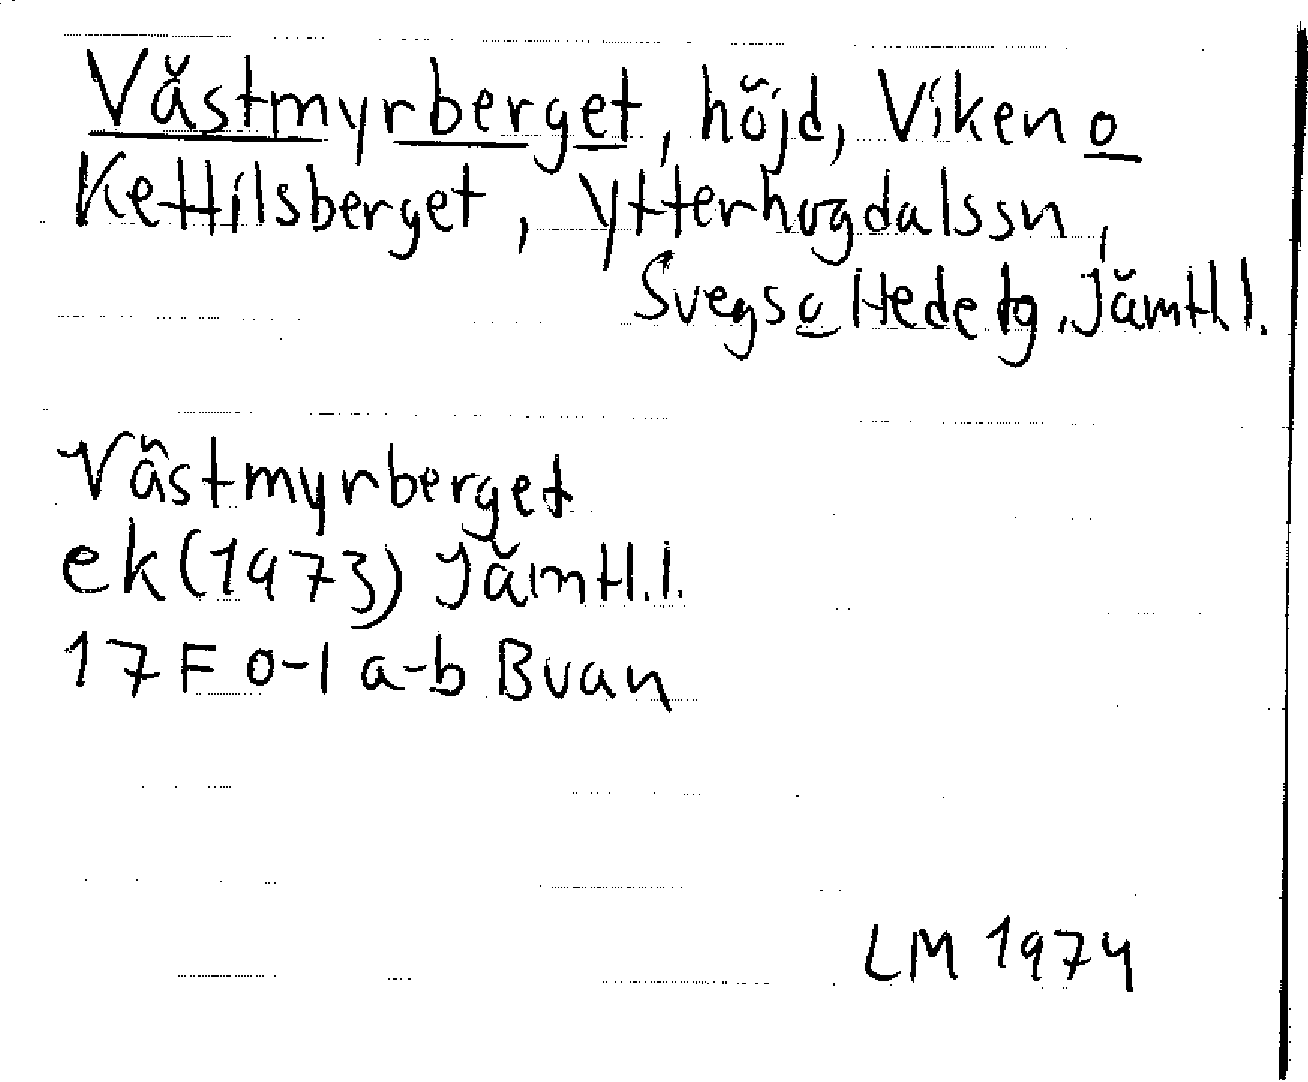 Västmyrberget, höjd, Viken o
Kettilsberget, Ytterhogdalssn,
Svegs o Hede tg, Jämtl l.
Västmyrberget
ek (1973) Jämtl. l.
17 F 0-1 a-b Buan
LM 1974